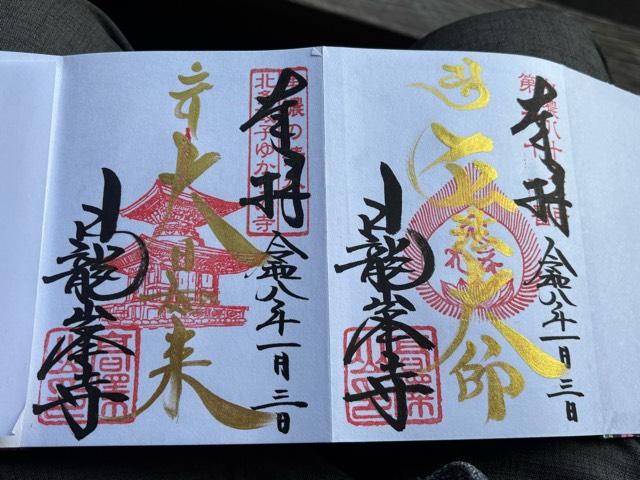 奉拝
令和八年一月三日
大師
日龍峯寺
奉拝
令和八年一月三日
北条政子ゆかりの寺
大日如来
日龍峯寺